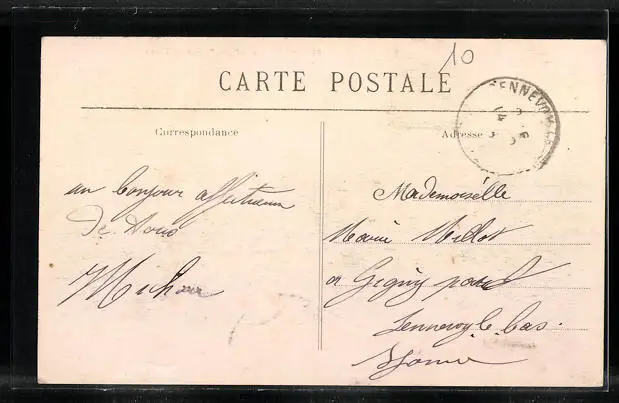 10
CARTE POSTALE
Correspondance
Adresse
SENNEVOY
un bonjour affectueux
de vous
Mademoiselle
Marie Millot
a Gigny par
Sennevoy le bas
Yonne